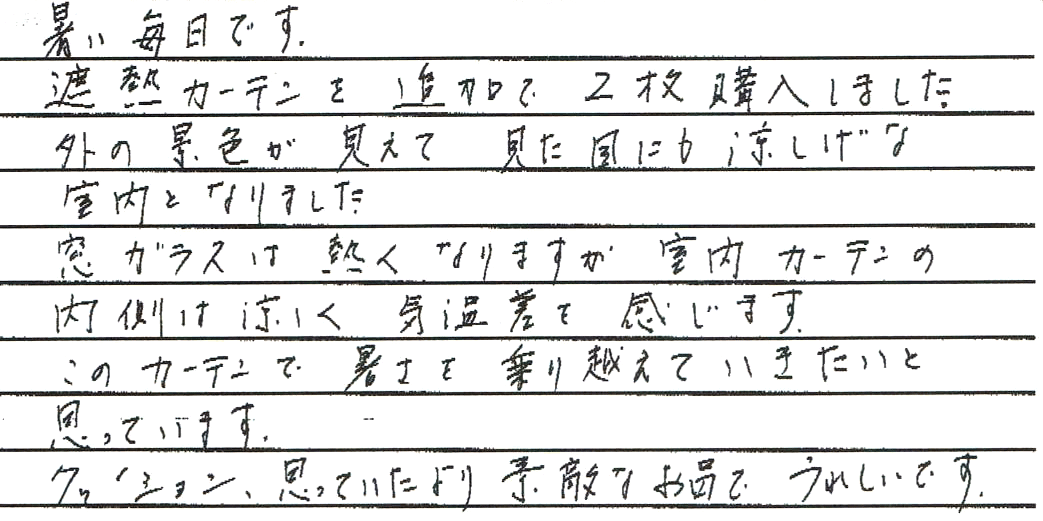 暑い毎日です.
遮熱カーテンを追加で2枚購入しました
外の景色が見えて見た目にも涼しげな
室内となりました
窓ガラスは熱くなりますが室内カーテンの
内側は涼しく気温差を感じます.
このカーテンで暑さを乗り越えていきたいと
思っています.
クッション、思っていたより素敵なお品でうれしいです.